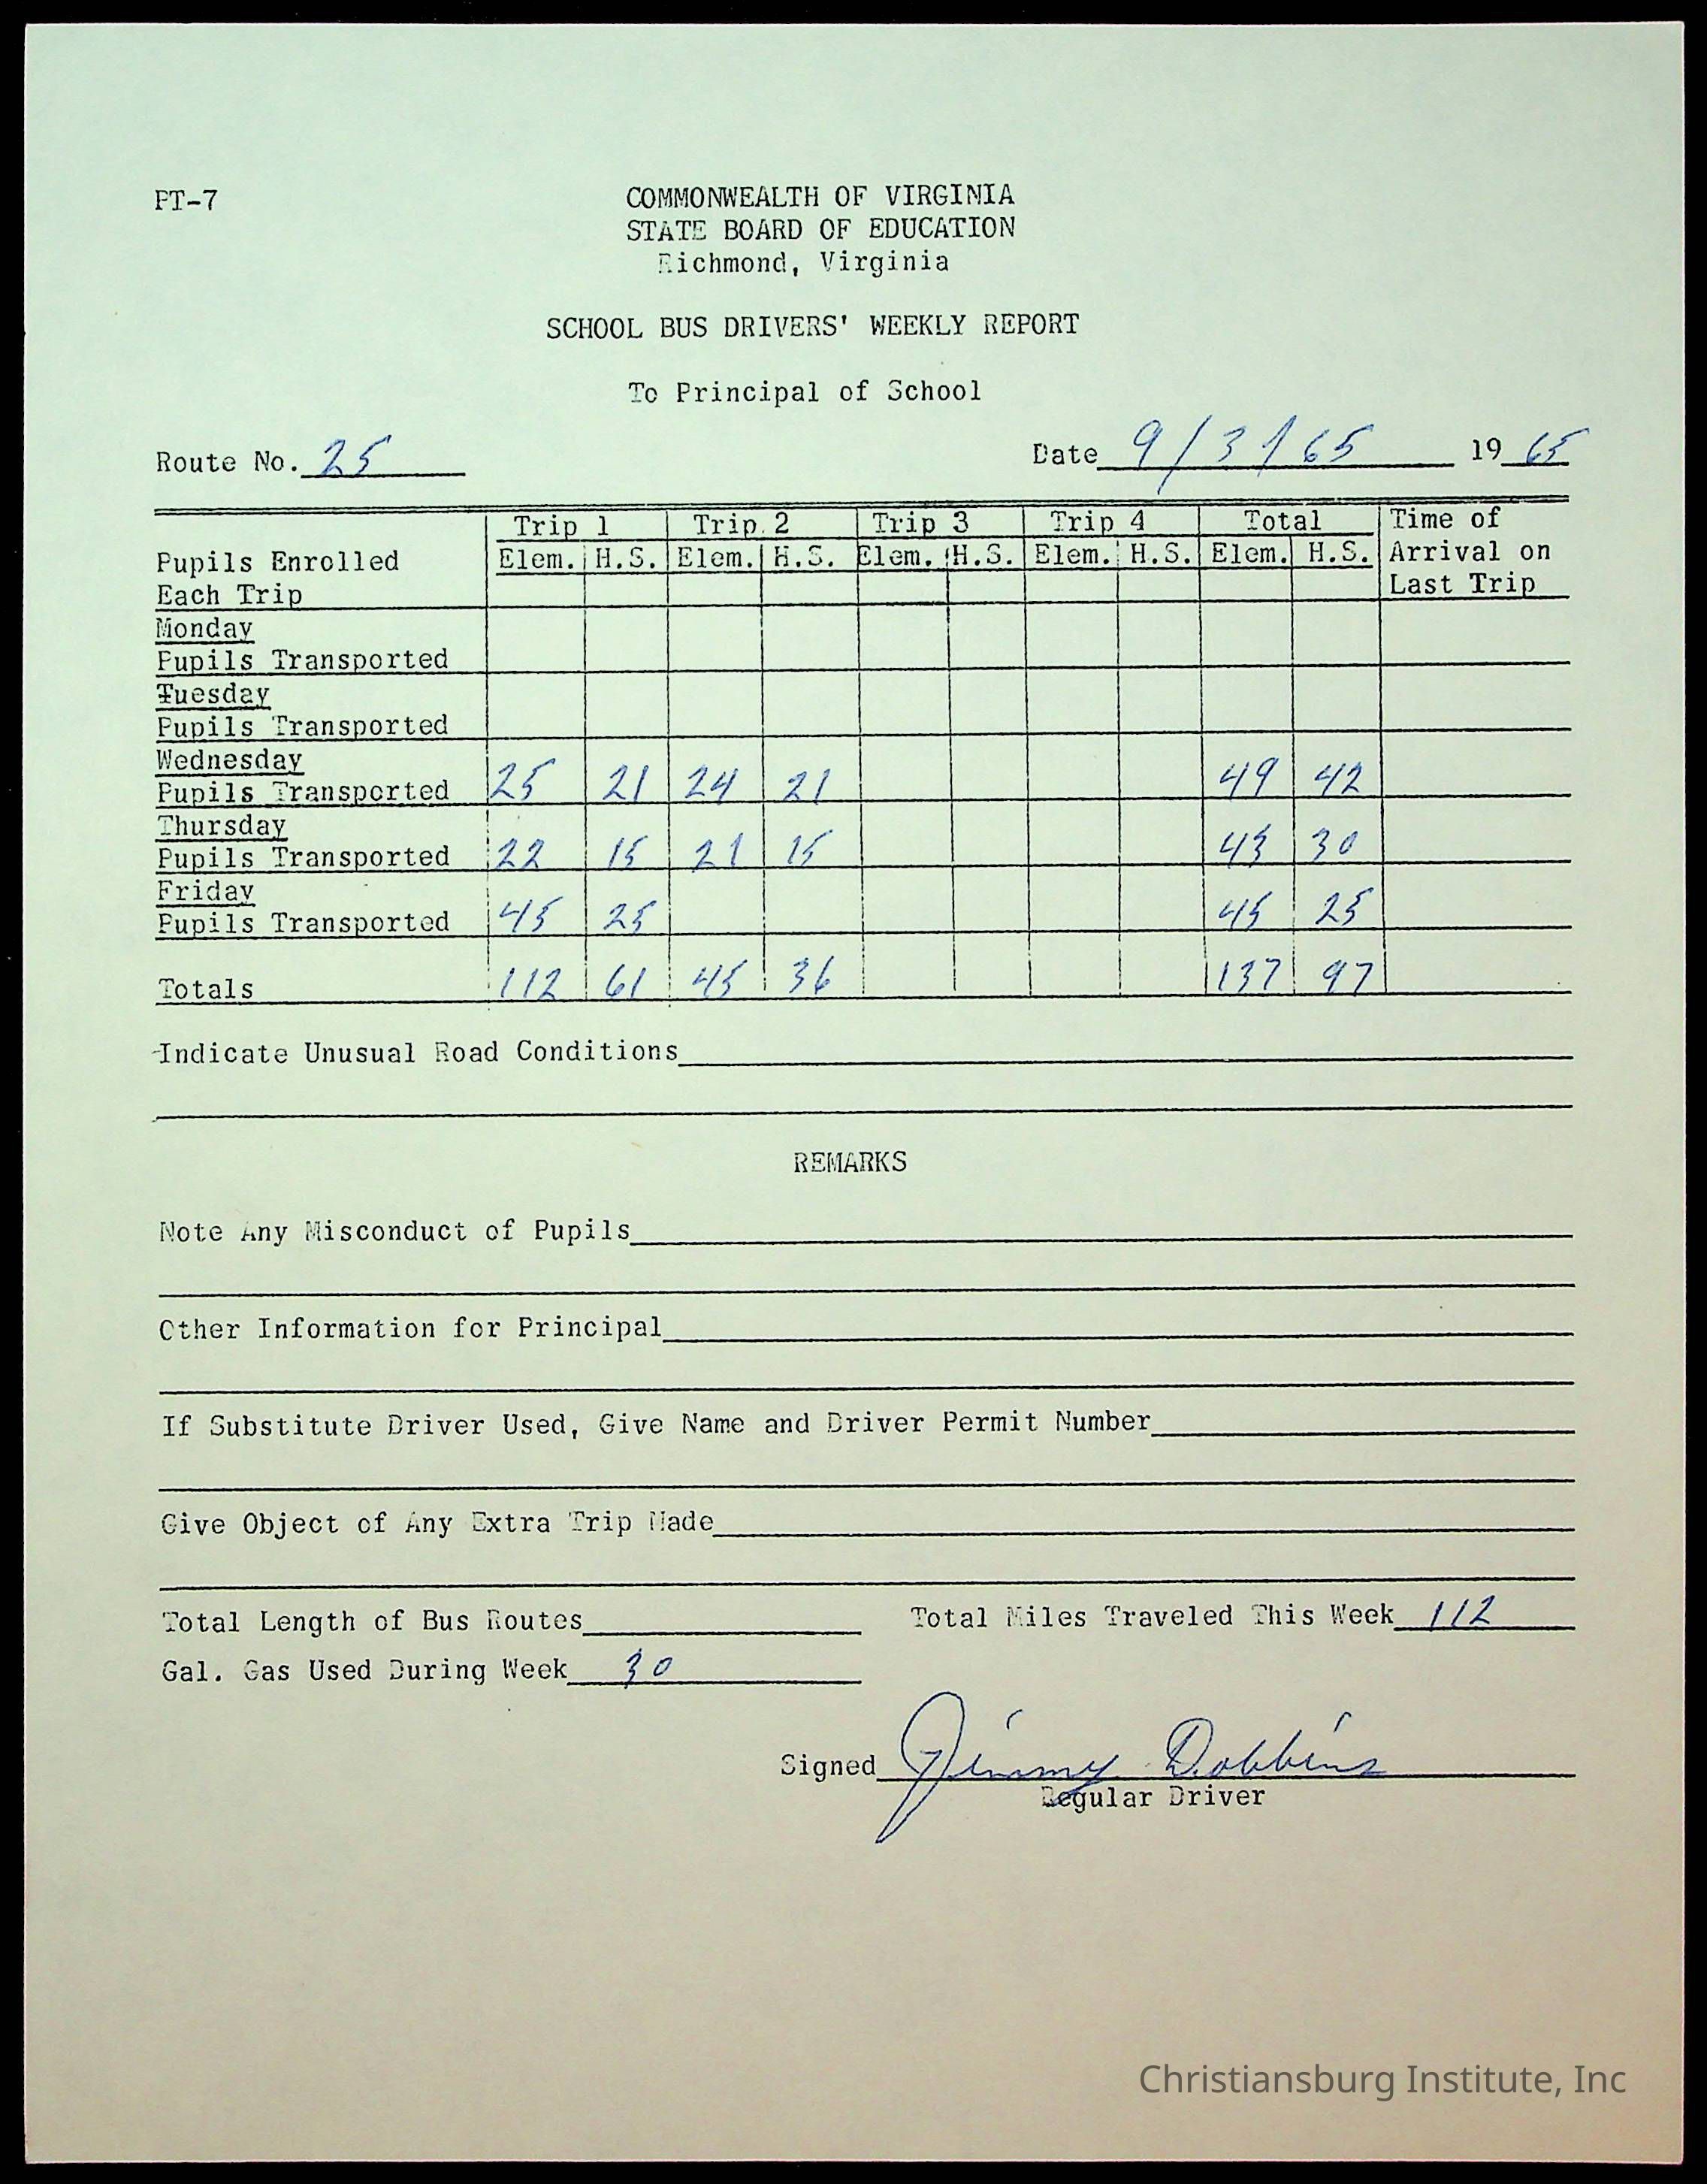 PT-7
COMMONWEALTH OF VIRGINIA
STATE BOARD OF EDUCATION
Richmond, Virginia
SCHOOL BUS DRIVERS' WEEKLY REPORT
To Principal of School
Route No. 25 Date 9/3/65 19 65
Trip 1 Trip 2 Trip 3 Trip 4 Total Time of
Pupils Enrolled Elem. H.S. Elem. H.S. Elem. H.S. Elem. H.S. Elem. H.S. Arrival on
Each Trip Last Trip
Monday
Pupils Transported
Tuesday
Pupils Transported
Wednesday
Pupils Transported 25 21 24 21 49 42
Thursday
Pupils Transported 22 15 21 15 43 30
Friday
Pupils Transported 45 25 45 25
Totals 112 61 45 36 137 97
Indicate Unusual Road Conditions
REMARKS
Note Any Misconduct of Pupils
Other Information for Principal
If Substitute Driver Used, Give Name and Driver Permit Number
Give Object of Any Extra Trip Made
Total Length of Bus Routes Total Miles Traveled This Week 112
Gal. Gas Used During Week 30
Signed Jimmy Dobbins
Regular Driver
Christiansburg Institute, Inc